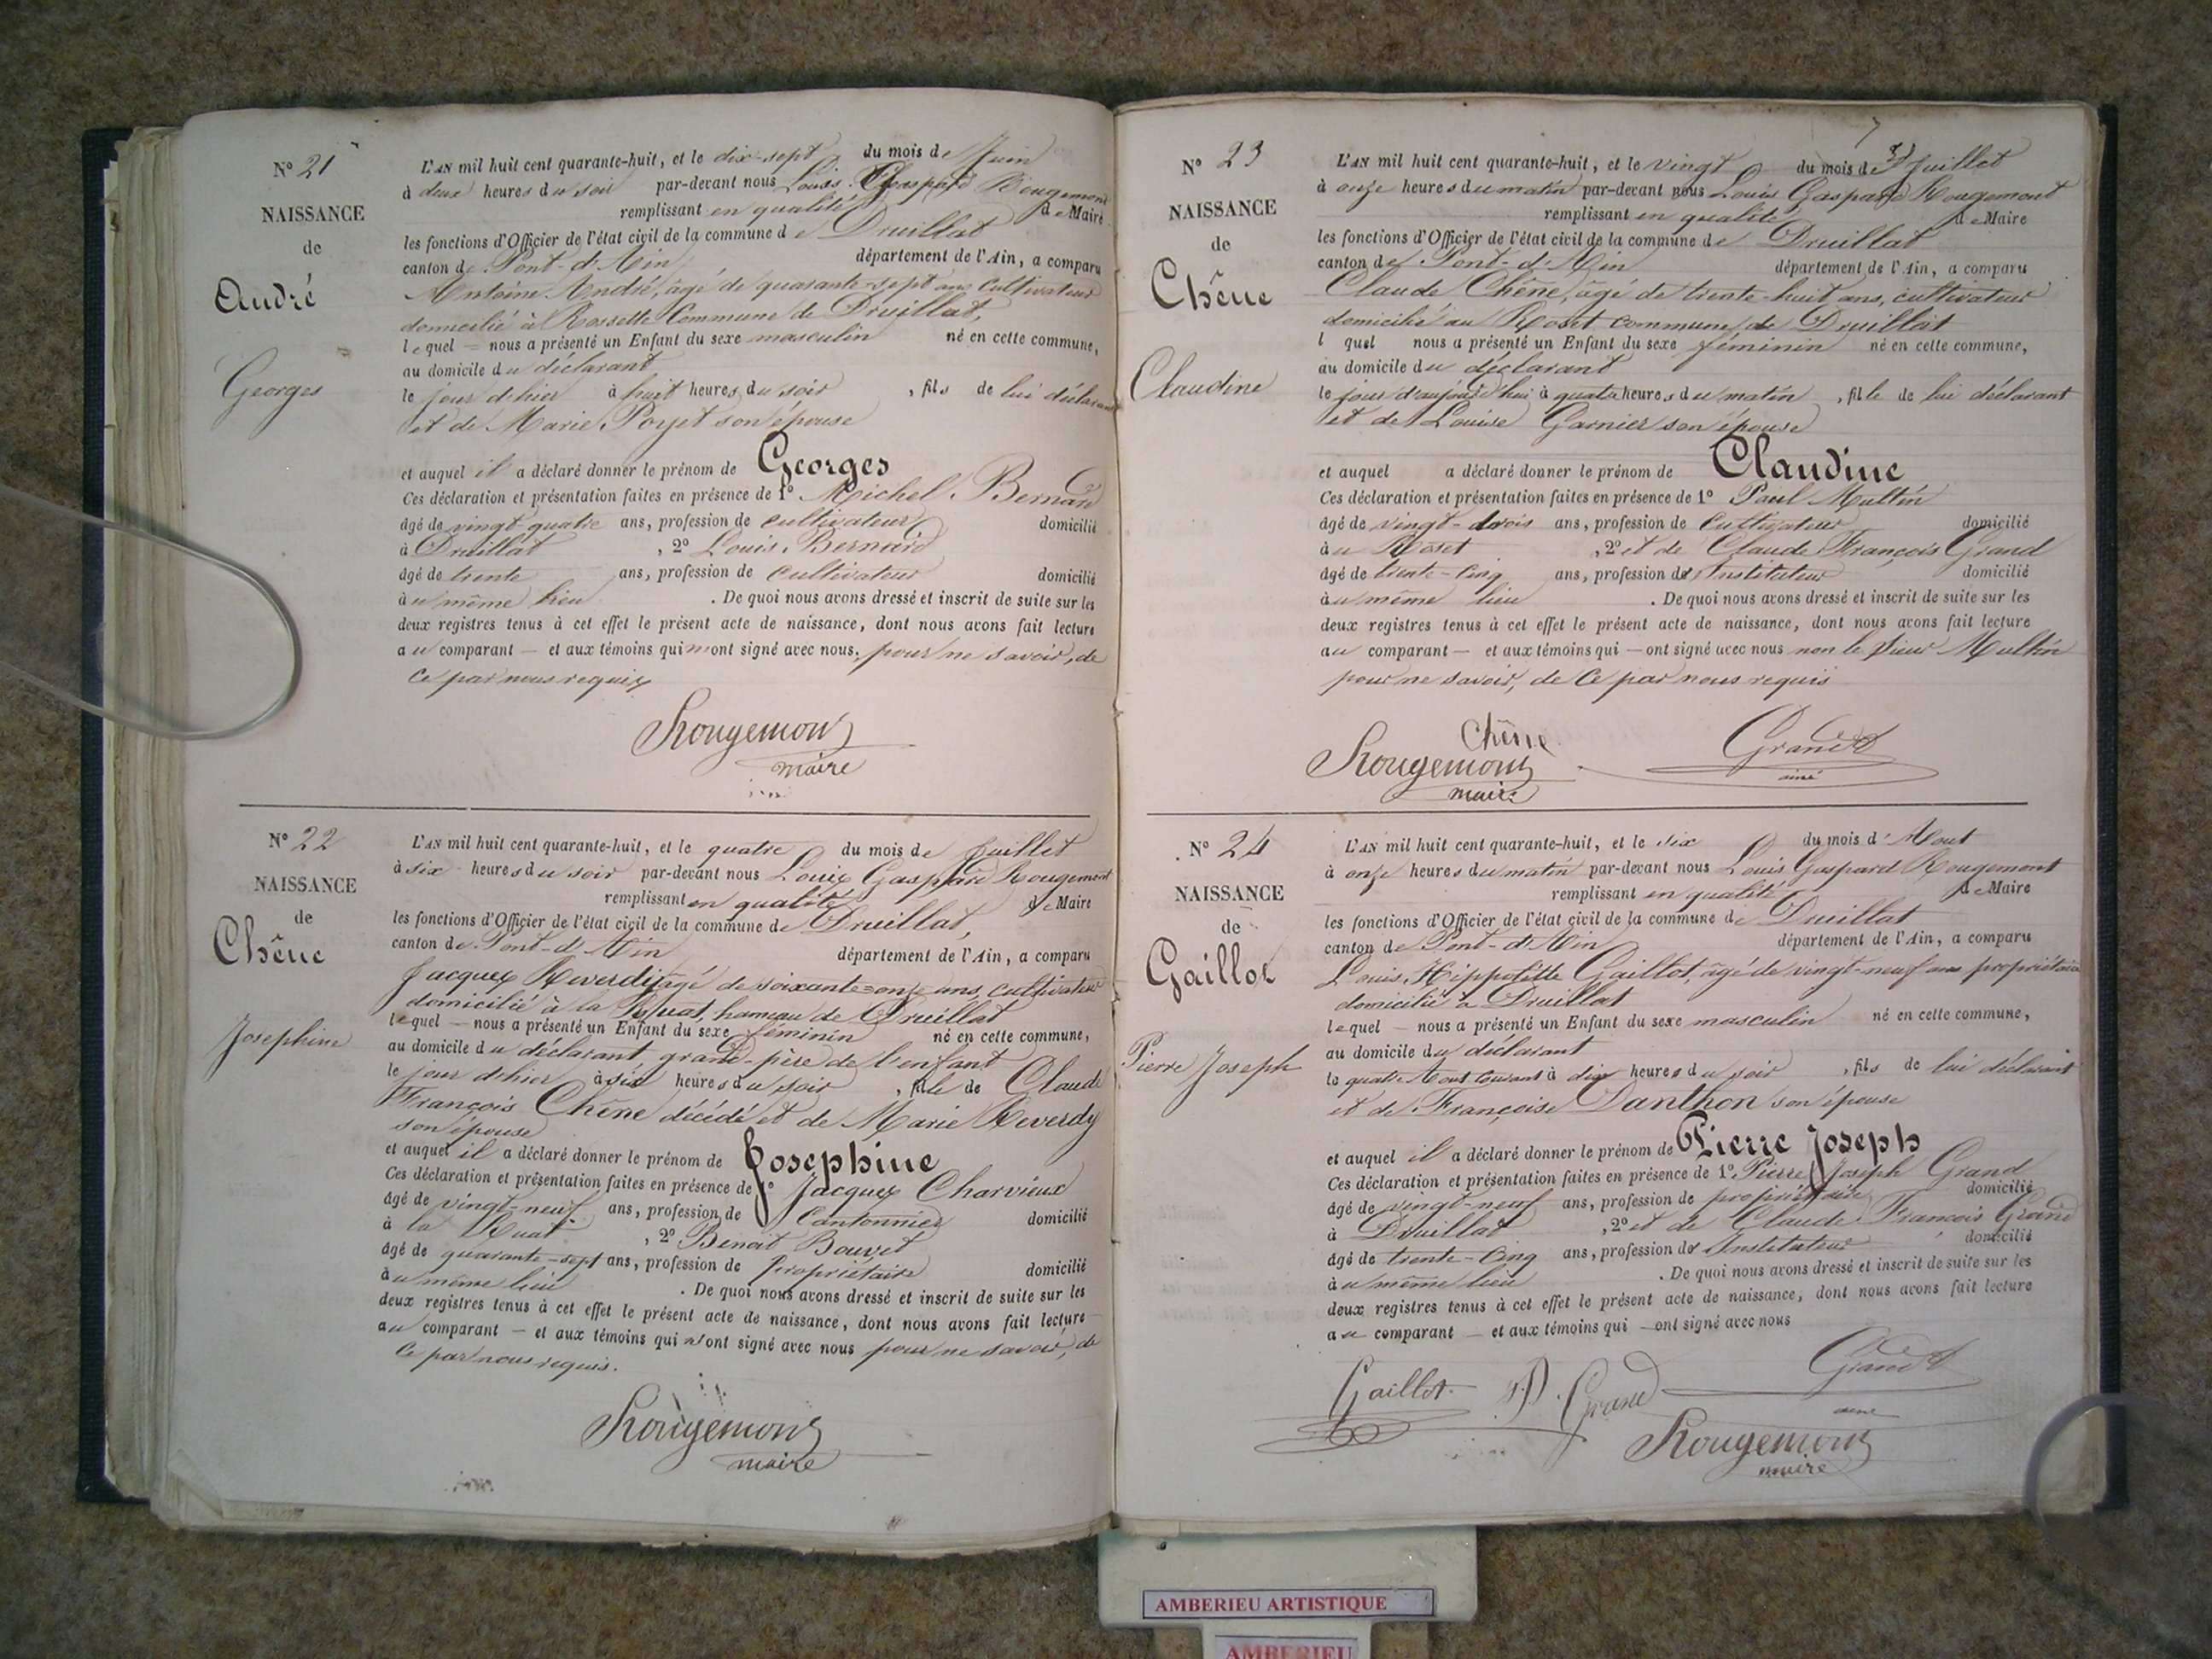 N° 21
NAISSANCE
de
André
Georges
L'AN mil huit cent quarante-huit, et le dix-sept du mois de Juin
à deux heures du soir par-devant nous Louis Gaspard Rougemont
remplissant en qualité de Maire
les fonctions d'Officier de l'état civil de la commune de Druillat
canton de Pont-d'Ain département de l'Ain, a comparu
Antoine André, âgé de quarante-sept ans Cultivateur
domicilié à Rossette Commune de Druillat,
lequel — nous a présenté un Enfant du sexe masculin né en cette commune,
au domicile du déclarant
le jour d'hier à huit heures du soir, fils de lui déclarant
et de Marie son épouse
et auquel il a déclaré donner le prénom de Georges
Ces déclaration et présentation faites en présence de 1° Michel Bernard
âgé de vingt quatre ans, profession de cultivateur domicilié
à Druillat, 2° Louis Bernard
âgé de trente ans, profession de cultivateur domicilié
au même lieu. De quoi nous avons dressé et inscrit de suite sur les
deux registres tenus à cet effet le présent acte de naissance, dont nous avons fait lecture
au comparant — et aux témoins qui n'ont signé avec nous, pour ne savoir, de
ce par nous requis
Rougemont
maire
N° 22
NAISSANCE
de
Chêne
Josephine
L'AN mil huit cent quarante-huit, et le quatre du mois de Juillet
à six heures du soir par-devant nous Louis Gaspard Rougemont
remplissant en qualité de Maire
les fonctions d'Officier de l'état civil de la commune de Druillat,
canton de Pont-d'Ain département de l'Ain, a comparu
Jacques Reverdy âgé de soixante-onze ans, cultivateur
domicilié à la Ruat, hameau de Druillat
lequel — nous a présenté un Enfant du sexe féminin né en cette commune,
au domicile du déclarant, grand-père de l'enfant
le jour d'hier à six heures du soir, fille de Claude
François Chêne décédé et de Marie Reverdy
son épouse
et auquel il a déclaré donner le prénom de Josephine
Ces déclaration et présentation faites en présence de 1° Jacques Charvieux
âgé de vingt-neuf ans, profession de Cantonnier domicilié
à la Ruat, 2° Benoit Bouvet
âgé de quarante-sept ans, profession de propriétaire domicilié
au même lieu. De quoi nous avons dressé et inscrit de suite sur les
deux registres tenus à cet effet le présent acte de naissance, dont nous avons fait lecture
au comparant — et aux témoins qui n'ont signé avec nous pour ne savoir, de
ce par nous requis.
Rougemont
maire
7
N° 23
NAISSANCE
de
Chêne
Claudine
L'AN mil huit cent quarante-huit, et le vingt du mois de Juillet
à onze heures du matin par-devant nous Louis Gaspard Rougemont
remplissant en qualité de Maire
les fonctions d'Officier de l'état civil de la commune de Druillat
canton de Pont-d'Ain département de l'Ain, a comparu
Claude Chêne, âgé de trente-huit ans, cultivateur
domicilié au Roset commune de Druillat
l quel nous a présenté un Enfant du sexe féminin né en cette commune,
au domicile du déclarant
le jour d'aujourd'hui à quatre heures du matin, fille de lui déclarant
et de Louise Garnier son épouse
et auquel a déclaré donner le prénom de Claudine
Ces déclaration et présentation faites en présence de 1° Paul Multin
âgé de vingt-trois ans, profession de Cultivateur domicilié
au Roset, 2° et de Claude François Grand
âgé de trente-cinq ans, profession d' Instituteur domicilié
au même lieu. De quoi nous avons dressé et inscrit de suite sur les
deux registres tenus à cet effet le présent acte de naissance, dont nous avons fait lecture
au comparant — et aux témoins qui — ont signé avec nous non le sieur Multin
pour ne savoir, de ce par nous requis
Chêne
Grand
ainé
Rougemont
maire
N° 24
NAISSANCE
de
Gaillot
Pierre Joseph
L'AN mil huit cent quarante-huit, et le six du mois d'Aout
à onze heures du matin par-devant nous Louis Gaspard Rougemont
remplissant en qualité de Maire
les fonctions d'Officier de l'état civil de la commune de Druillat
canton de Pont-d'Ain département de l'Ain, a comparu
Louis Hippolitte Gaillot, âgé de vingt-neuf ans propriétaire
domicilié à Druillat
lequel — nous a présenté un Enfant du sexe masculin né en cette commune,
au domicile du déclarant
le quatre Aout courant à dix heures du soir, fils de lui déclarant
et de Françoise Danthon son épouse
et auquel il a déclaré donner le prénom de Pierre Joseph
Ces déclaration et présentation faites en présence de 1° Pierre Joseph Grand
âgé de vingt-neuf ans, profession de propriétaire domicilié
à Druillat, 2° et de Claude François Grand
âgé de trente-cinq ans, profession d' Instituteur domicilié
au même lieu. De quoi nous avons dressé et inscrit de suite sur les
deux registres tenus à cet effet le présent acte de naissance, dont nous avons fait lecture
au comparant — et aux témoins qui — ont signé avec nous
Gaillot
P. Grand
Grand
ainé
Rougemont
maire
AMBERIEU ARTISTIQUE
AMBERIEU